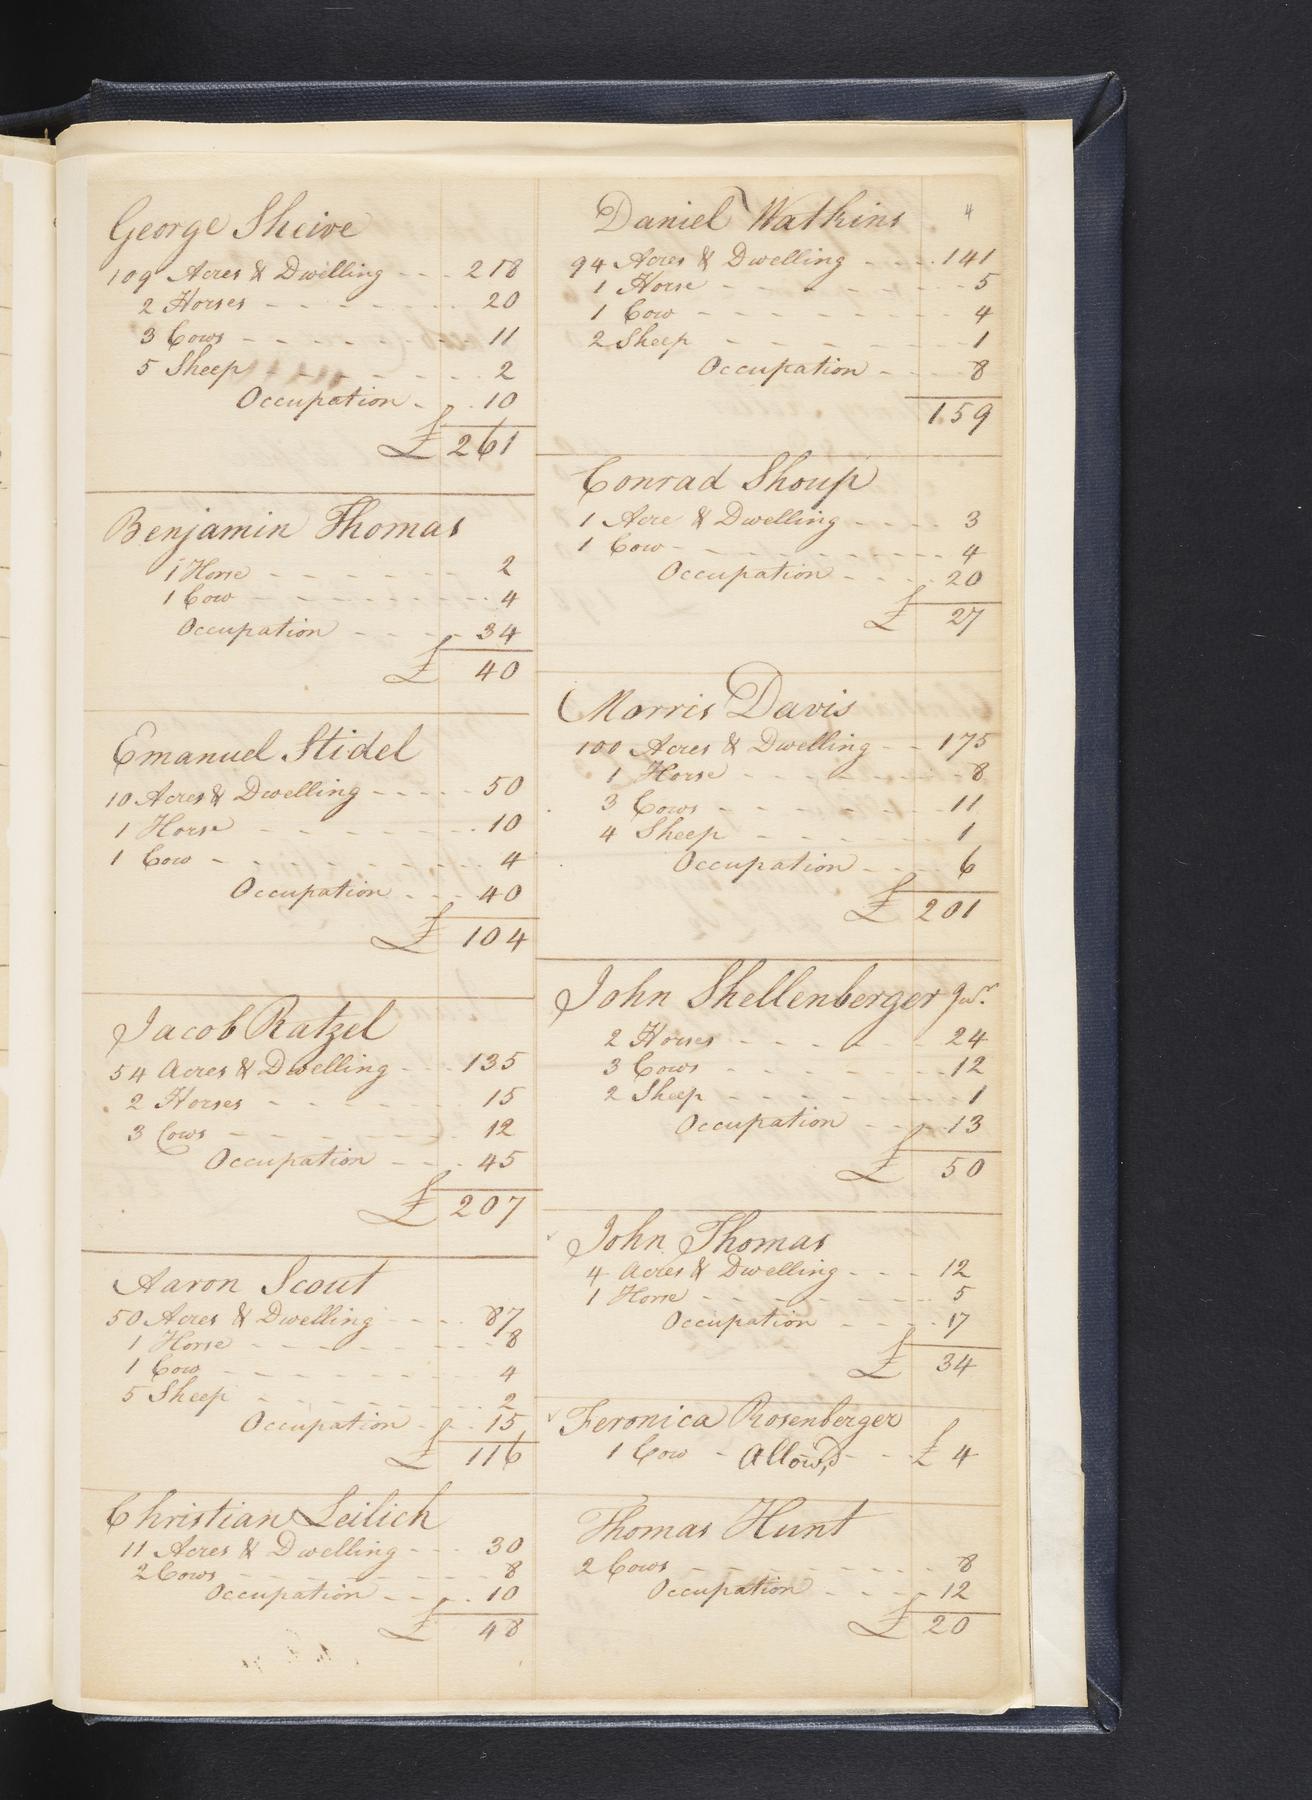 George Sheive
109 Acres & Dwelling - - - 218
2 Horses - - - - - - - 20
3 Cows - - - - - - - 11
5 Sheep - - - - - - 2
Occupation - . . 10
£ 261
Benjamin Thomas
1 Horse - - - - - - 2
1 Cow - - - - - - - 4
Occupation - - - - 34
£ 40
Emanuel Stidel
10 Acres & Dwelling - - - - - 50
1 Horse - - - - - - 10
1 Cow - - - - - - - 4
Occupation - - - 40
£ 104
Jacob Ratzel
54 Acres & Dwelling - - - 135
2 Horses - - - - - - 15
3 Cows - - - - - - 12
Occupation - - - 45
£ 207
Aaron Scout
50 Acres & Dwelling - - - - 87
1 Horse - - - - - - - 8
1 Cow - - - - - - - 4
5 Sheep - - - - - - 2
Occupation - - . . 15
£ 116
Christian Leilich
11 Acres & Dwelling - - - 30
2 Cows - - - - - - - 8
Occupation - - - . 10
£ 48
4
Daniel Watkins
94 Acres & Dwelling - - - - 141
1 Horse - - - - - - - 5
1 Cow - - - - - - - - 4
2 Sheep - - - - - - - 1
Occupation - - - - 8
159
Conrad Shoup
1 Acre & Dwelling - - - - 3
1 Cow - - - - - - - - 4
Occupation - - - - 20
£ 27
Morris Davis
100 Acres & Dwelling - - - 175
1 Horse - - - - - - - 8
3 Cows - - - - - - 11
4 Sheep - - - - - 1
Occupation - - - - 6
£ 201
John Shellenberger Jur.
2 Horses - - - - - - 24
3 Cows - - - - - - - 12
2 Sheep - - - - - - - 1
Occupation - - - - 13
£ 50
John Thomas
4 Acres & Dwelling - - - - 12
1 Horse - - - - - - - 5
Occupation - - - - 17
£ 34
Feronica Rosenberger
1 Cow - Allow,d - - - £ 4
Thomas Hunt
2 Cows - - - - - - - 8
Occupation - - - - 12
£ 20